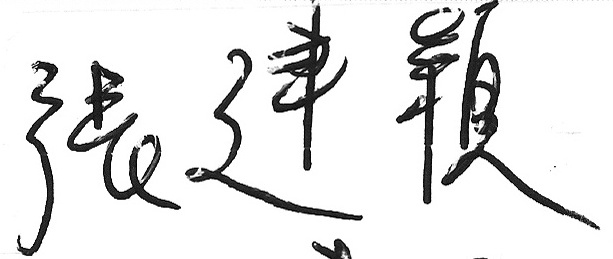 張建穎